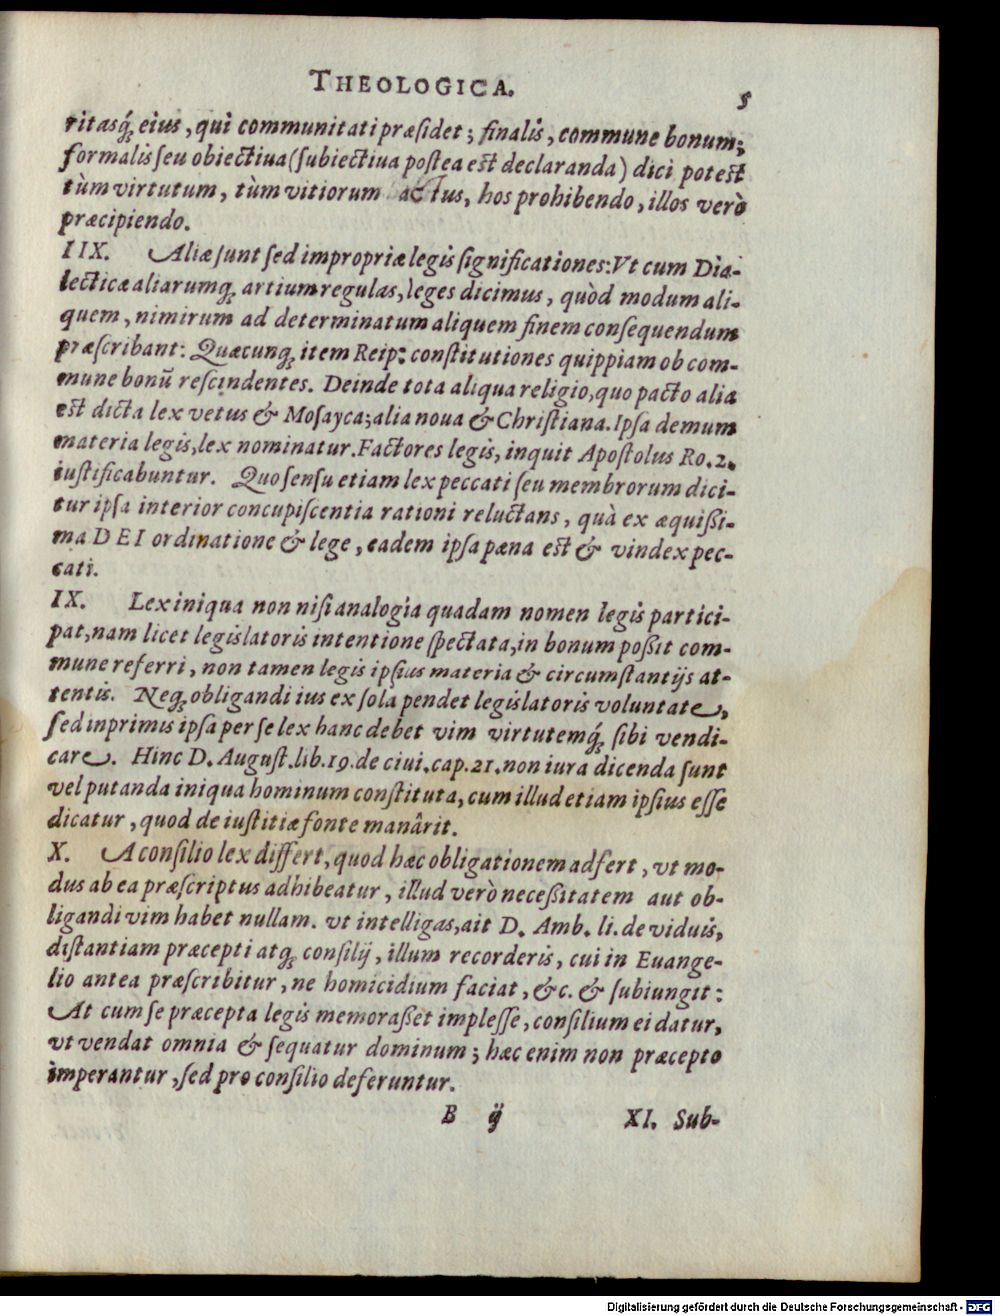 THEOLOGICA. 5
ritasq́ꝫ eius, qui communitati præsidet; finalis, commune bonum;
formalis seu obiectiua (subiectiua postea est declaranda) dici potest
tùm virtutum, tùm vitiorum actus, hos prohibendo, illos verò
præcipiendo.
IIX. Aliæ sunt sed impropriæ legis significationes: Vt cum Dia-
lecticæ aliarumqꝫ artium regulas, leges dicimus, quòd modum ali-
quem, nimirum ad determinatum aliquem finem consequendum
præscribant: Quæcunqꝫ item Reip: constitutiones quippiam ob com-
mune bonū rescindentes. Deinde tota aliqua religio, quo pacto alia
est dicta lex vetus & Mosayca; alia noua & Christiana. Ipsa demum
materia legis, lex nominatur. Factores legis, inquit Apostolus Ro. 2.
iustificabuntur. Quo sensu etiam lex peccati seu membrorum dici-
tur ipsa interior concupiscentia rationi reluctans, quà ex æquißi-
ma DEI ordinatione & lege, eadem ipsa pæna est & vindex pec-
cati.
IX. Lex iniqua non nisi analogia quadam nomen legis partici-
pat, nam licet legislatoris intentione spectata, in bonum poßit com-
mune referri, non tamen legis ipsius materia & circumstantijs at-
tentis. Neqꝫ obligandi ius ex sola pendet legislatoris voluntate,
sed inprimis ipsa per se lex hanc debet vim virtutemq́ꝫ sibi vendi-
care. Hinc D. August. lib. 19. de ciui. cap. 21. non iura dicenda sunt
vel putanda iniqua hominum constituta, cum illud etiam ipsius esse
dicatur, quod de iustitiæ fonte manârit.
X. A consilio lex differt, quod hæc obligationem adfert, vt mo-
dus ab ea præscriptus adhibeatur, illud verò neceßitatem aut ob-
ligandi vim habet nullam. vt intelligas, ait D. Amb. li. de viduis,
distantiam præcepti atqꝫ consilij, illum recorderis, cui in Euange-
lio antea præscribitur, ne homicidium faciat, &c. & subiungit:
At cum se præcepta legis memoraßet implesse, consilium ei datur,
vt vendat omnia & sequatur dominum; hæc enim non præcepto
imperantur, sed pro consilio deferuntur.
B ij XI. Sub-
Digitalisierung gefördert durch die Deutsche Forschungsgemeinschaft - DFG